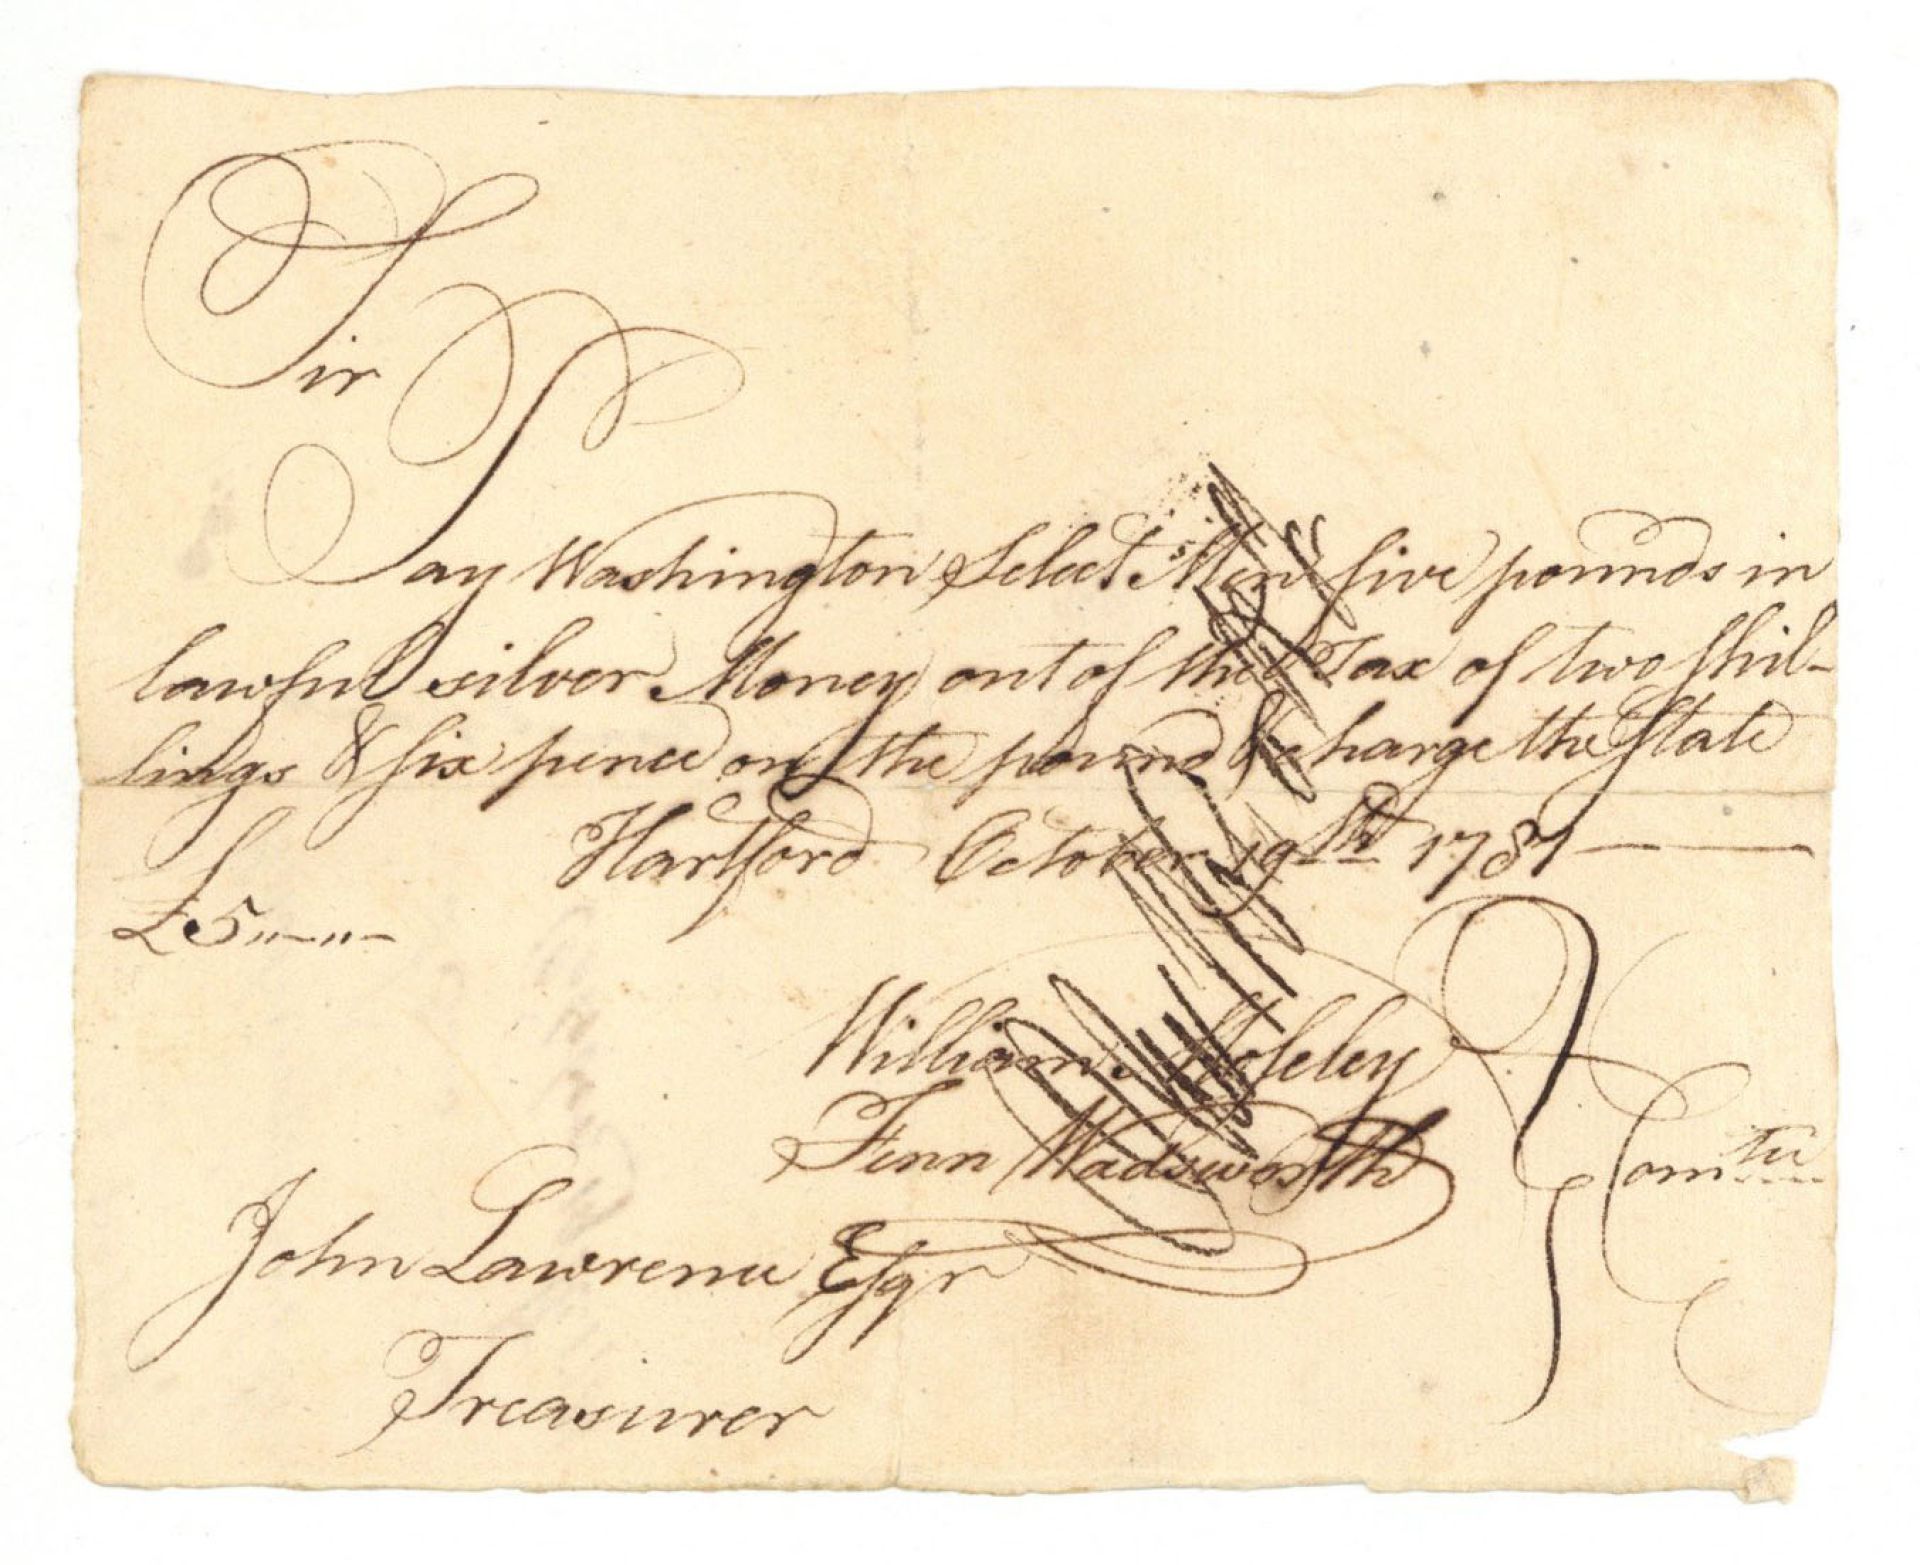 Sir
Pay Washington Select Men five pounds in
lawful silver Money out of the Tax of two shil-
lings & six pence on the pound & charge the State
Hartford October 19th 1781 —
£5 ,,-,,-
William Moseley
Fenn Wadsworth
Comtee
John Lawrence Esqr
Treasurer